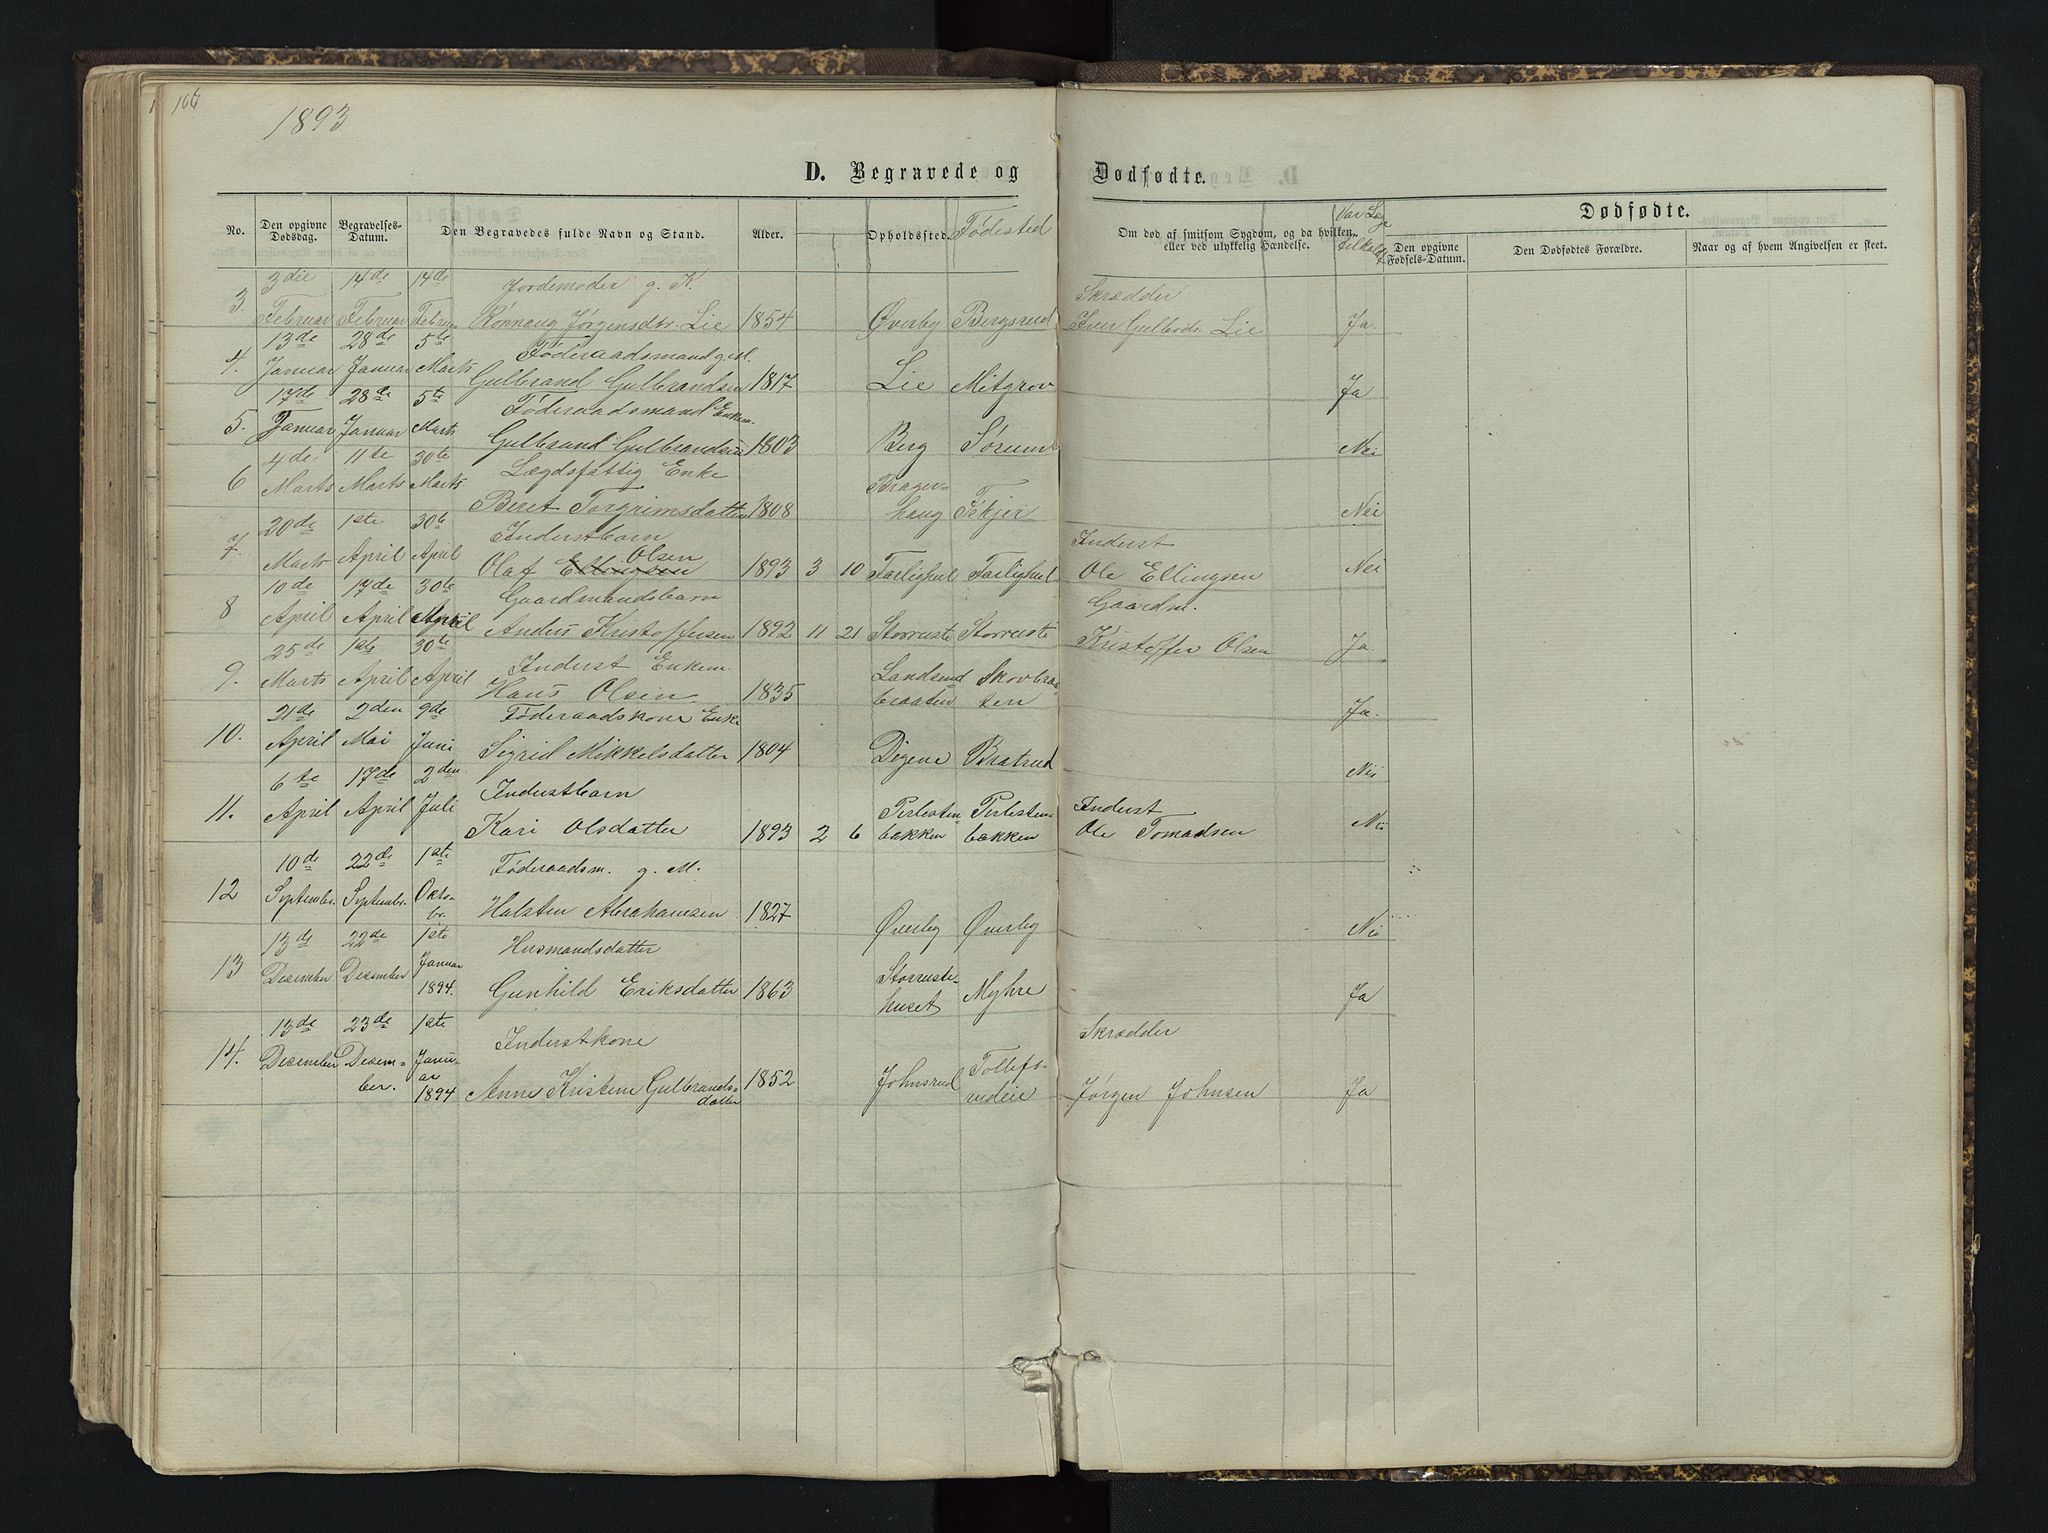 106
1893
D. Begravede og Dødfødte.
No. Den opgivne Dødsdag. Begravelses-Datum. Den Begravedes fulde Navn og Stand. Alder. Opholdssted. Fødested Om død af smitsom Sygdom, og da hvilken, eller ved ulykkelig Hændelse. Var Læge tilkaldt Dødfødte.
Den opgivne Fødsels-Datum. Den Dødfødtes Forældre. Naar og af hvem Angivelsen er skeet.
3die 14de 14de Jordemoder g. K. Skrædder
3. Februar Februar Februar Rönnaug Jørgensdtr. Lie 1854 Øverby Bergsrud Iver Gulbrds. Lie Ja
13de 28de 5te Føderaadsmand
4. Januar Januar Marts Gulbrand Gulbrandsen 1817 Lie Mitgrov Ja
17de 28de 5te Føderaadsmand Enkem.
5. Januar Januar Marts Gulbrand Gulbrandsen 1803 Berg Sørum Nei
4de 11te 30te Lægdsfattig Enke Brager-
6 Marts Marts Marts Beret Torgrimsdatter 1808 haug Tekjer Nei
20de 1ste 30te Inderstbarn Inderst
7. Marts April April Olaf Ellingsen Olsen 1893 3 10 Farlighul Farlighul Ole Ellingsen Nei
10de 17de 30te Gaardmandsbarn Gaardm.
8 April April April Anders Kristoffersen 1892 11 21 Storruste Storruste Kristoffer Olsen Ja.
25de 1ste 30te Inderst Enkem. Landsend Skovbraa-
9. Marts April April Hans Olsen 1835 braaten ten Ja.
21de 2den 9de Føderaadskone Enke
10. April Mai Juni Sigrid Mikkelsdatter 1804 Digene Bratrud Nei
6te 17de 2den Inderstbarn Perlesten- Perlesten- Inderst
11. April April Juli Kari Olsdatter 1893 2 6 bakken bakken Ole Tomadsen Nei
10de 22de 1ste Føderaadsm. g. M.
12 Septembr. Septembr. Okto-br. Halsten Abrahamsen 1827 Øverby Øverby Nei
13de 22de 1ste Husmandsdatter Storruste-
13 Desember Desember Januar 1894. Gunhild Eriksdatter 1863 huset Myhre Ja
13de 23de 1ste Inderstkone Skrædder
14. Desember Desem-ber. Janu-ar 1894 Anne Kristine Gulbrands-datter 1852 Johnsrud Tollefs-rudeie Jørgen Johnsen Ja